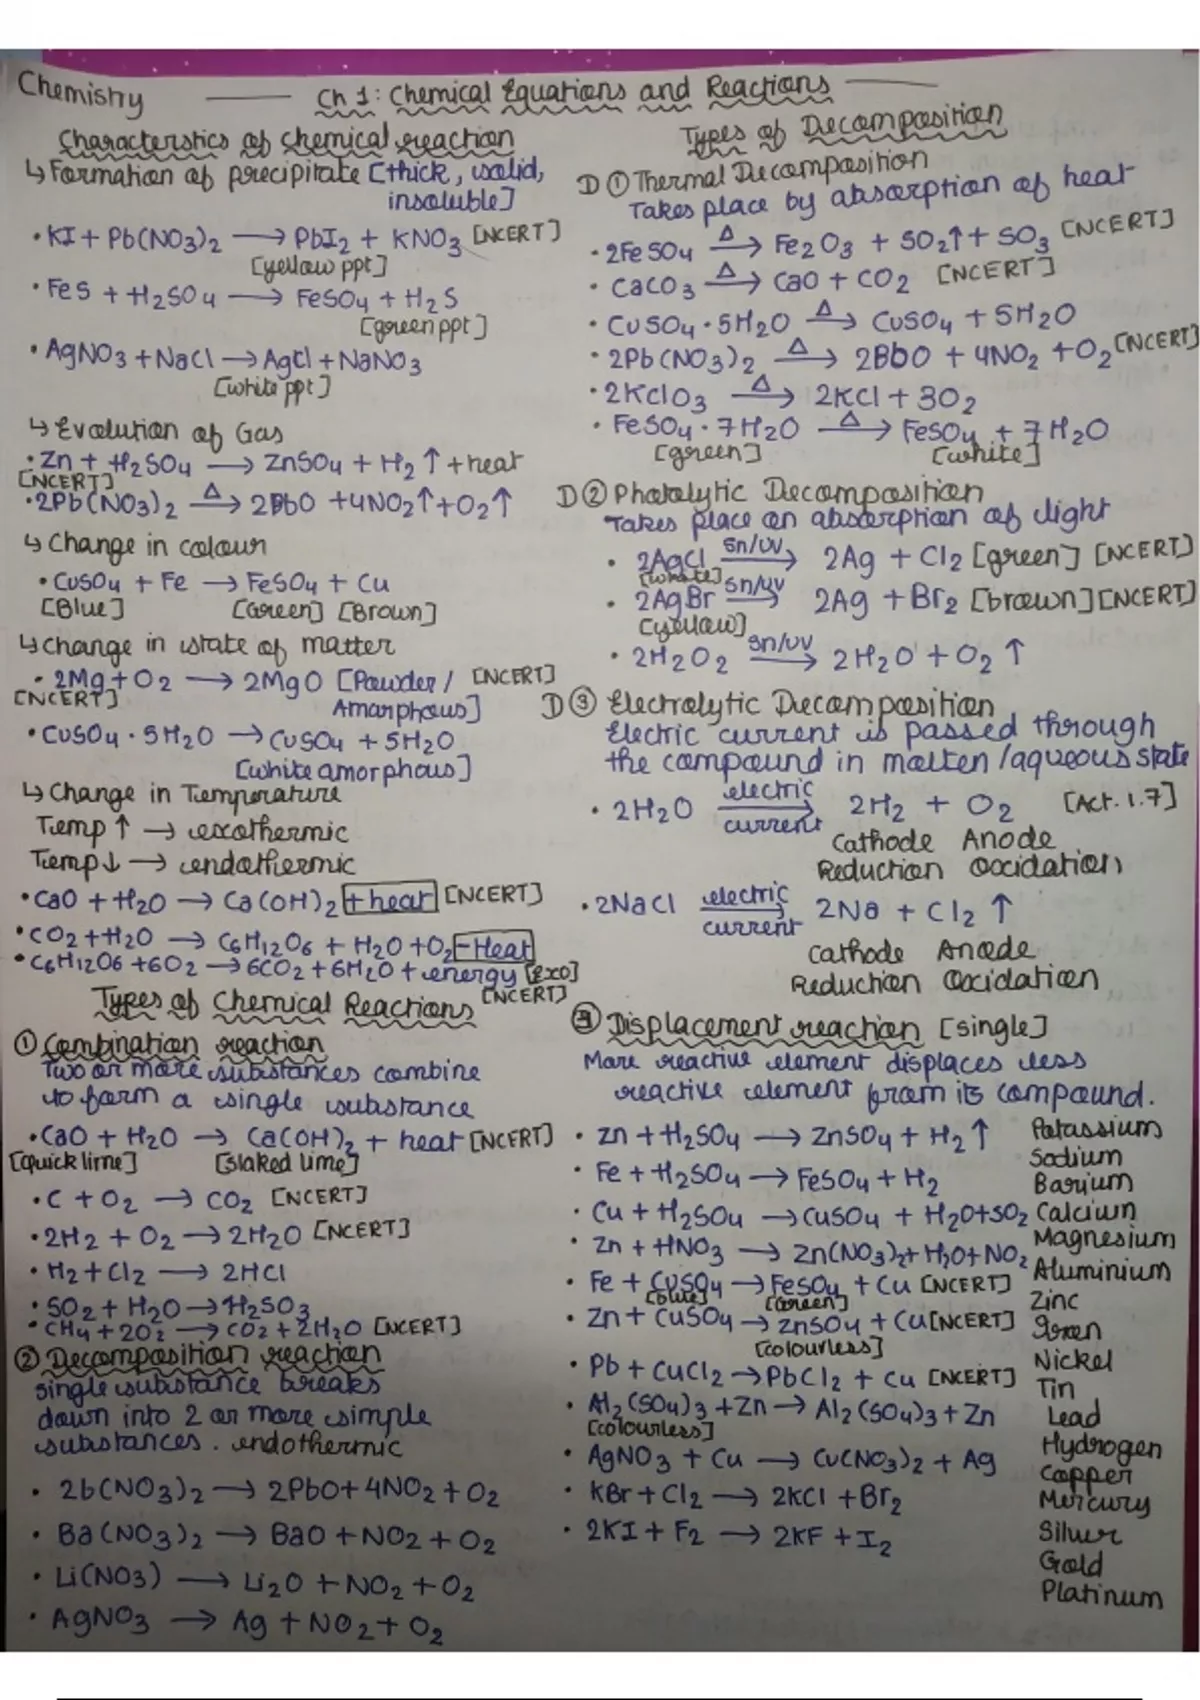 Chemistry
Ch 1: Chemical Equations and Reactions
Characterstics of chemical reaction
↳ Formation of precipitate [thick, solid,
insoluble]
• KI + Pb(NO3)2 → PbI2 + KNO3 [NCERT]
[yellow ppt]
• FeS + H2SO4 → FeSO4 + H2S
[green ppt]
• AgNO3 + NaCl → AgCl + NaNO3
[white ppt]
↳ Evolution of Gas
• Zn + H2SO4 → ZnSO4 + H2 ↑ + heat
[NCERT]
• 2Pb(NO3)2 —Δ→ 2PbO + 4NO2↑ + O2↑
↳ Change in colour
• CuSO4 + Fe → FeSO4 + Cu
[Blue] [Green] [Brown]
↳ Change in state of matter
• 2Mg + O2 → 2MgO [Powder/ [NCERT]
[NCERT] Amorphous]
• CuSO4 · 5H2O → CuSO4 + 5H2O
[white amorphous]
↳ Change in Temperature
Temp ↑ → exothermic
Temp ↓ → endothermic
• CaO + H2O → Ca(OH)2 + heat [NCERT]
• CO2 + H2O → C6H12O6 + H2O + O2 - Heat
• C6H12O6 + 6O2 → 6CO2 + 6H2O + energy [exo]
[NCERT]
Types of Chemical Reactions
① Combination reaction
Two or more substances combine
to form a single substance
• CaO + H2O → Ca(OH)2 + heat [NCERT]
[quick lime] [slaked lime]
• C + O2 → CO2 [NCERT]
• 2H2 + O2 → 2H2O [NCERT]
• H2 + Cl2 → 2HCl
• SO2 + H2O → H2SO3
• CH4 + 2O2 → CO2 + 2H2O [NCERT]
② Decomposition reaction
single substance breaks
down into 2 or more simple
substances. endothermic
• 2b(NO3)2 → 2PbO + 4NO2 + O2
• Ba(NO3)2 → BaO + NO2 + O2
• Li(NO3) → Li2O + NO2 + O2
• AgNO3 → Ag + NO2 + O2
Types of Decomposition
D ① Thermal Decomposition
Takes place by absorption of heat
• 2FeSO4 —Δ→ Fe2O3 + SO2↑ + SO3 [NCERT]
• CaCO3 —Δ→ CaO + CO2 [NCERT]
• CuSO4 · 5H2O —Δ→ CuSO4 + 5H2O
• 2Pb(NO3)2 —Δ→ 2BbO + 4NO2 + O2 [NCERT]
• 2KClO3 —Δ→ 2KCl + 3O2
• FeSO4 · 7H2O —Δ→ FeSO4 + 7H2O
[green] [white]
D ② Photolytic Decomposition
Takes place on absorption of light
• 2AgCl —Sn/UV→ 2Ag + Cl2 [green] [NCERT]
[white]
• 2AgBr —Sn/UV→ 2Ag + Br2 [brown] [NCERT]
[yellow]
• 2H2O2 —Sn/UV→ 2H2O + O2 ↑
D ③ Electrolytic Decomposition
Electric current is passed through
the compound in molten/aqueous state
• 2H2O —electric current→ 2H2 + O2 [Act. 1.7]
Cathode Anode
Reduction Occidation
• 2NaCl —electric current→ 2Na + Cl2 ↑
Cathode Anode
Reduction Occidation
③ Displacement reaction [single]
More reactive element displaces less
reactive element from its compound.
• Zn + H2SO4 → ZnSO4 + H2 ↑
• Fe + H2SO4 → FeSO4 + H2
• Cu + H2SO4 → CuSO4 + H2O + SO2
• Zn + HNO3 → Zn(NO3)2 + H2O + NO2
• Fe + CuSO4 → FeSO4 + Cu [NCERT]
[blue] [Green]
• Zn + CuSO4 → ZnSO4 + Cu [NCERT]
[colourless]
• Pb + CuCl2 → PbCl2 + Cu [NCERT]
• Al2(SO4)3 + Zn → Al2(SO4)3 + Zn
[colourless]
• AgNO3 + Cu → Cu(NO3)2 + Ag
• KBr + Cl2 → 2KCl + Br2
• 2KI + F2 → 2KF + I2
Potassium
Sodium
Barium
Calcium
Magnesium
Aluminium
Zinc
Iron
Nickel
Tin
Lead
Hydrogen
Copper
Mercury
Silver
Gold
Platinum